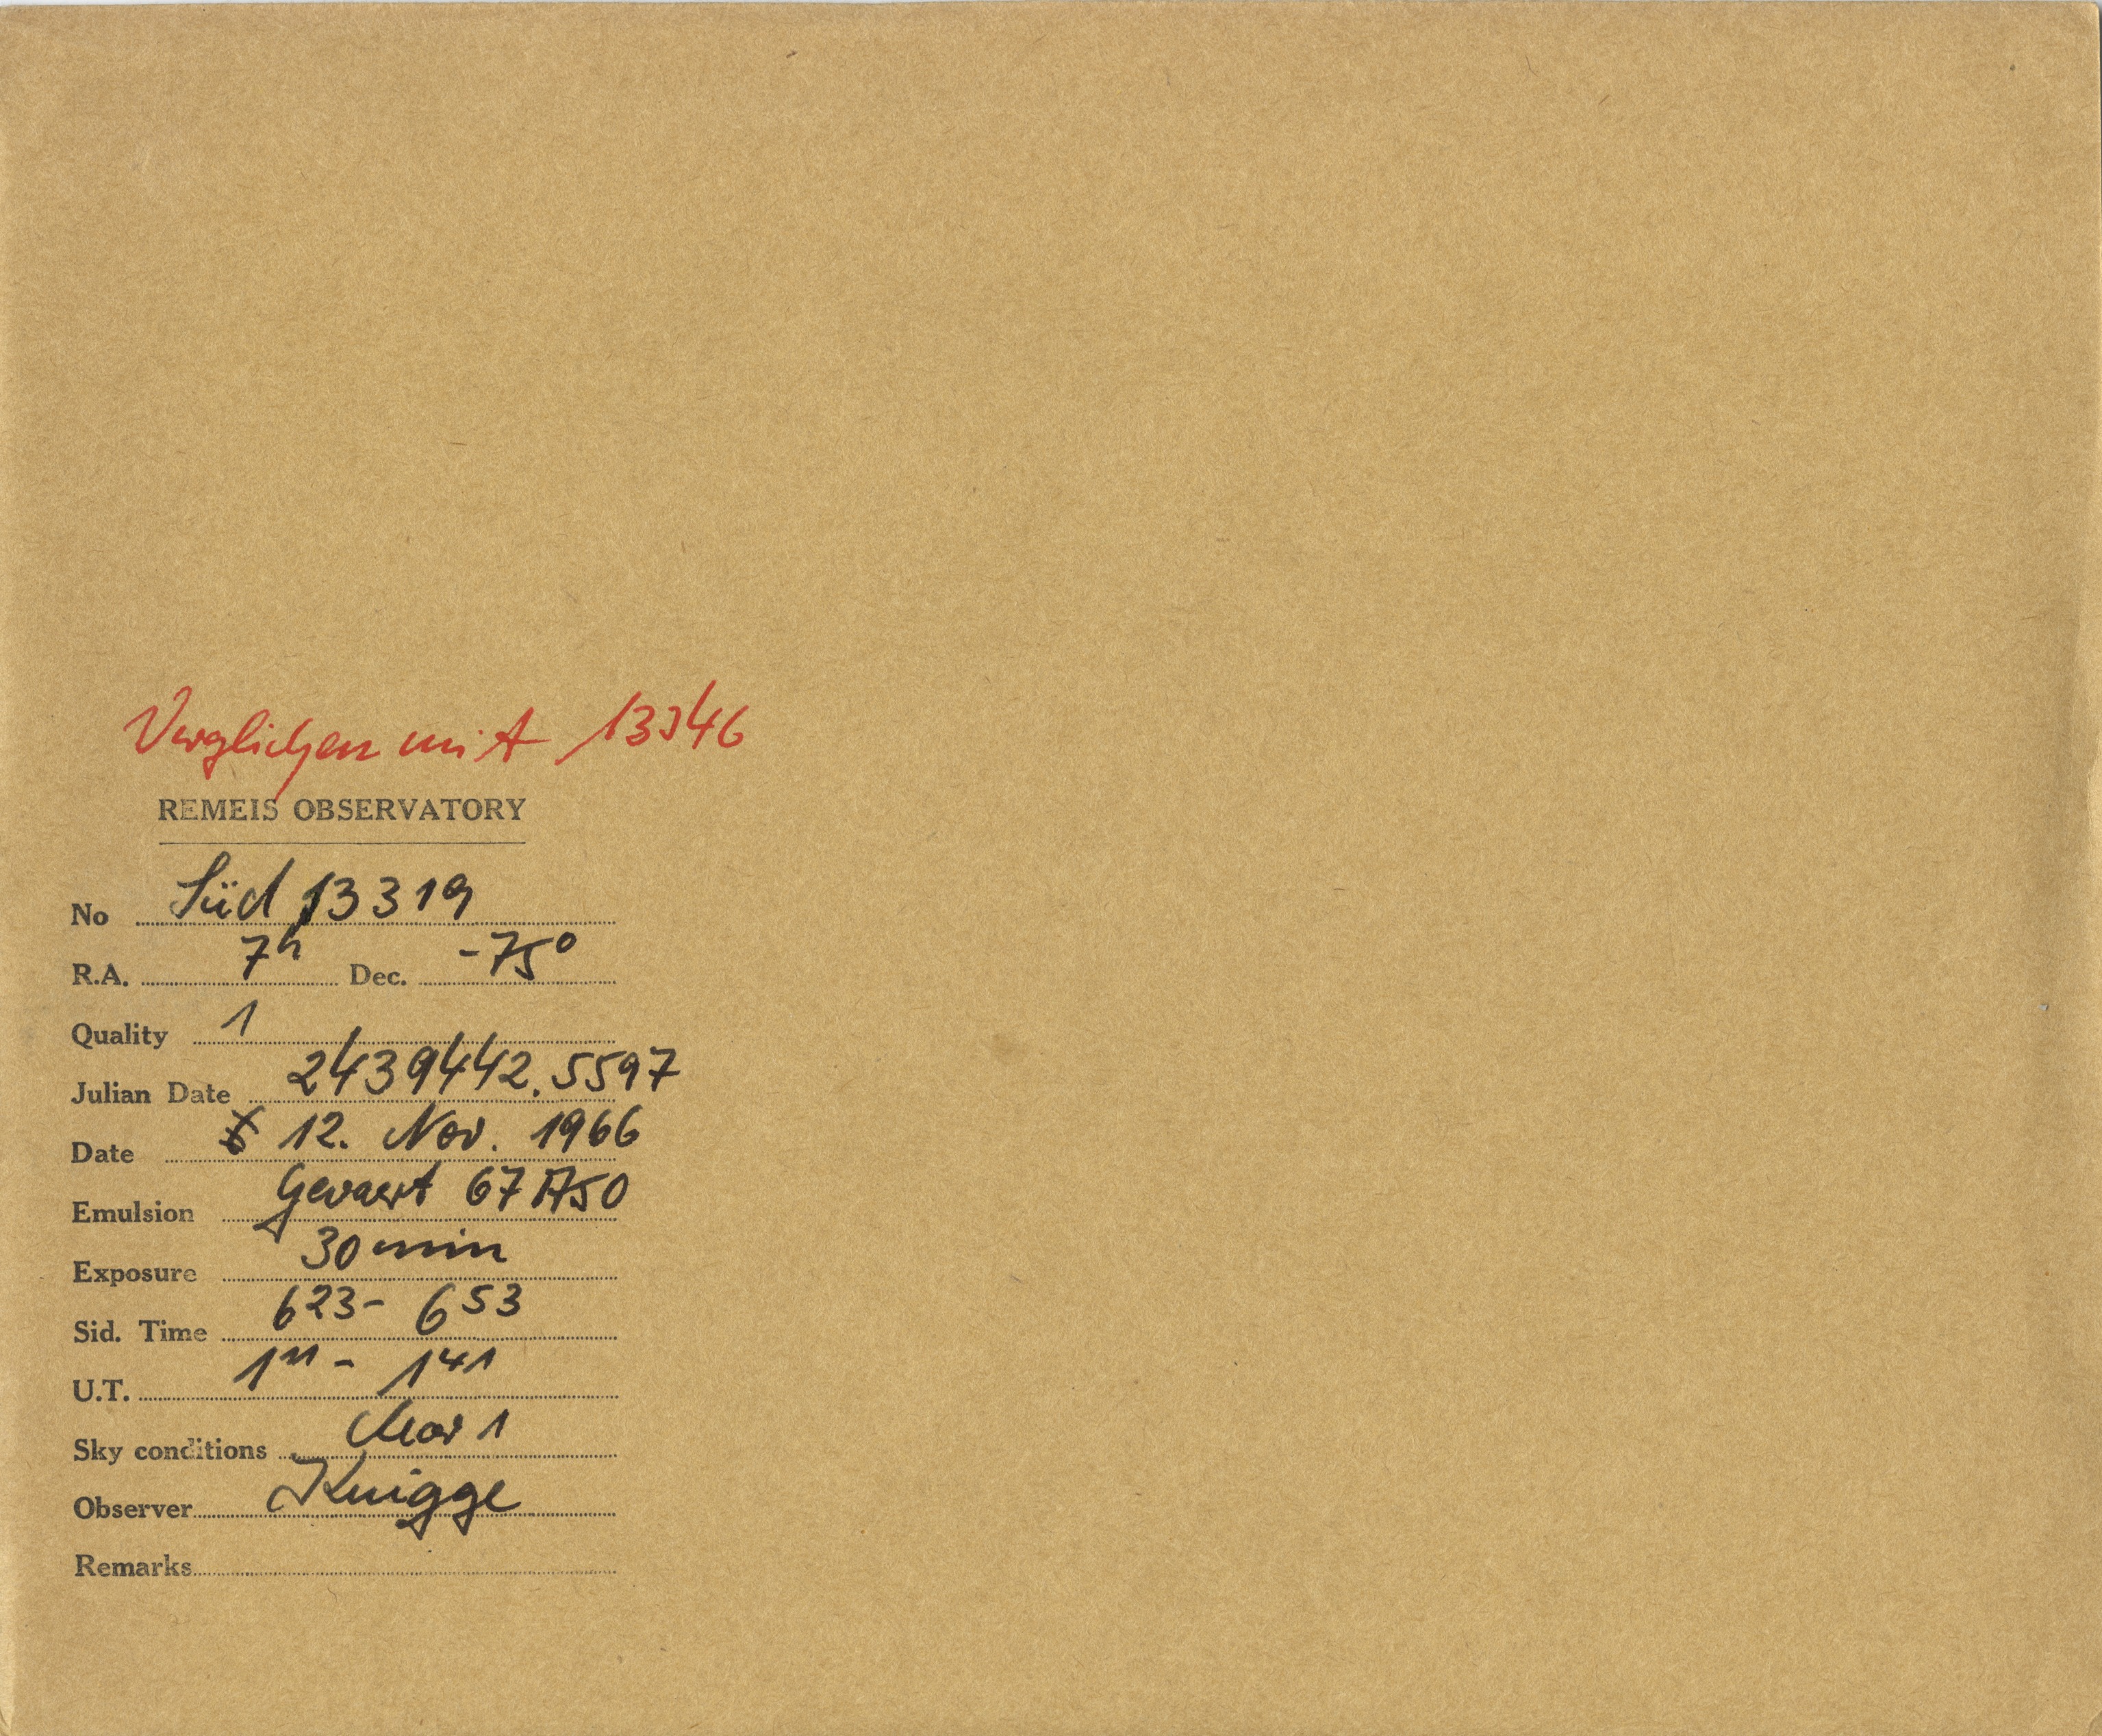 Verglichen mit 13346
REMEIS OBSERVATORY
No Süd 13319
R.A. 7h Dec. -75°
Quality 1
Julian Date 2439442.5597
Date 12. Nov. 1966
Emulsion Gevaert 67A50
Exposure 30 min
Sid. Time 6 23 - 6 53
U.T. 1 11 - 1 41
Sky conditions clear 1
Observer Knigge
Remarks